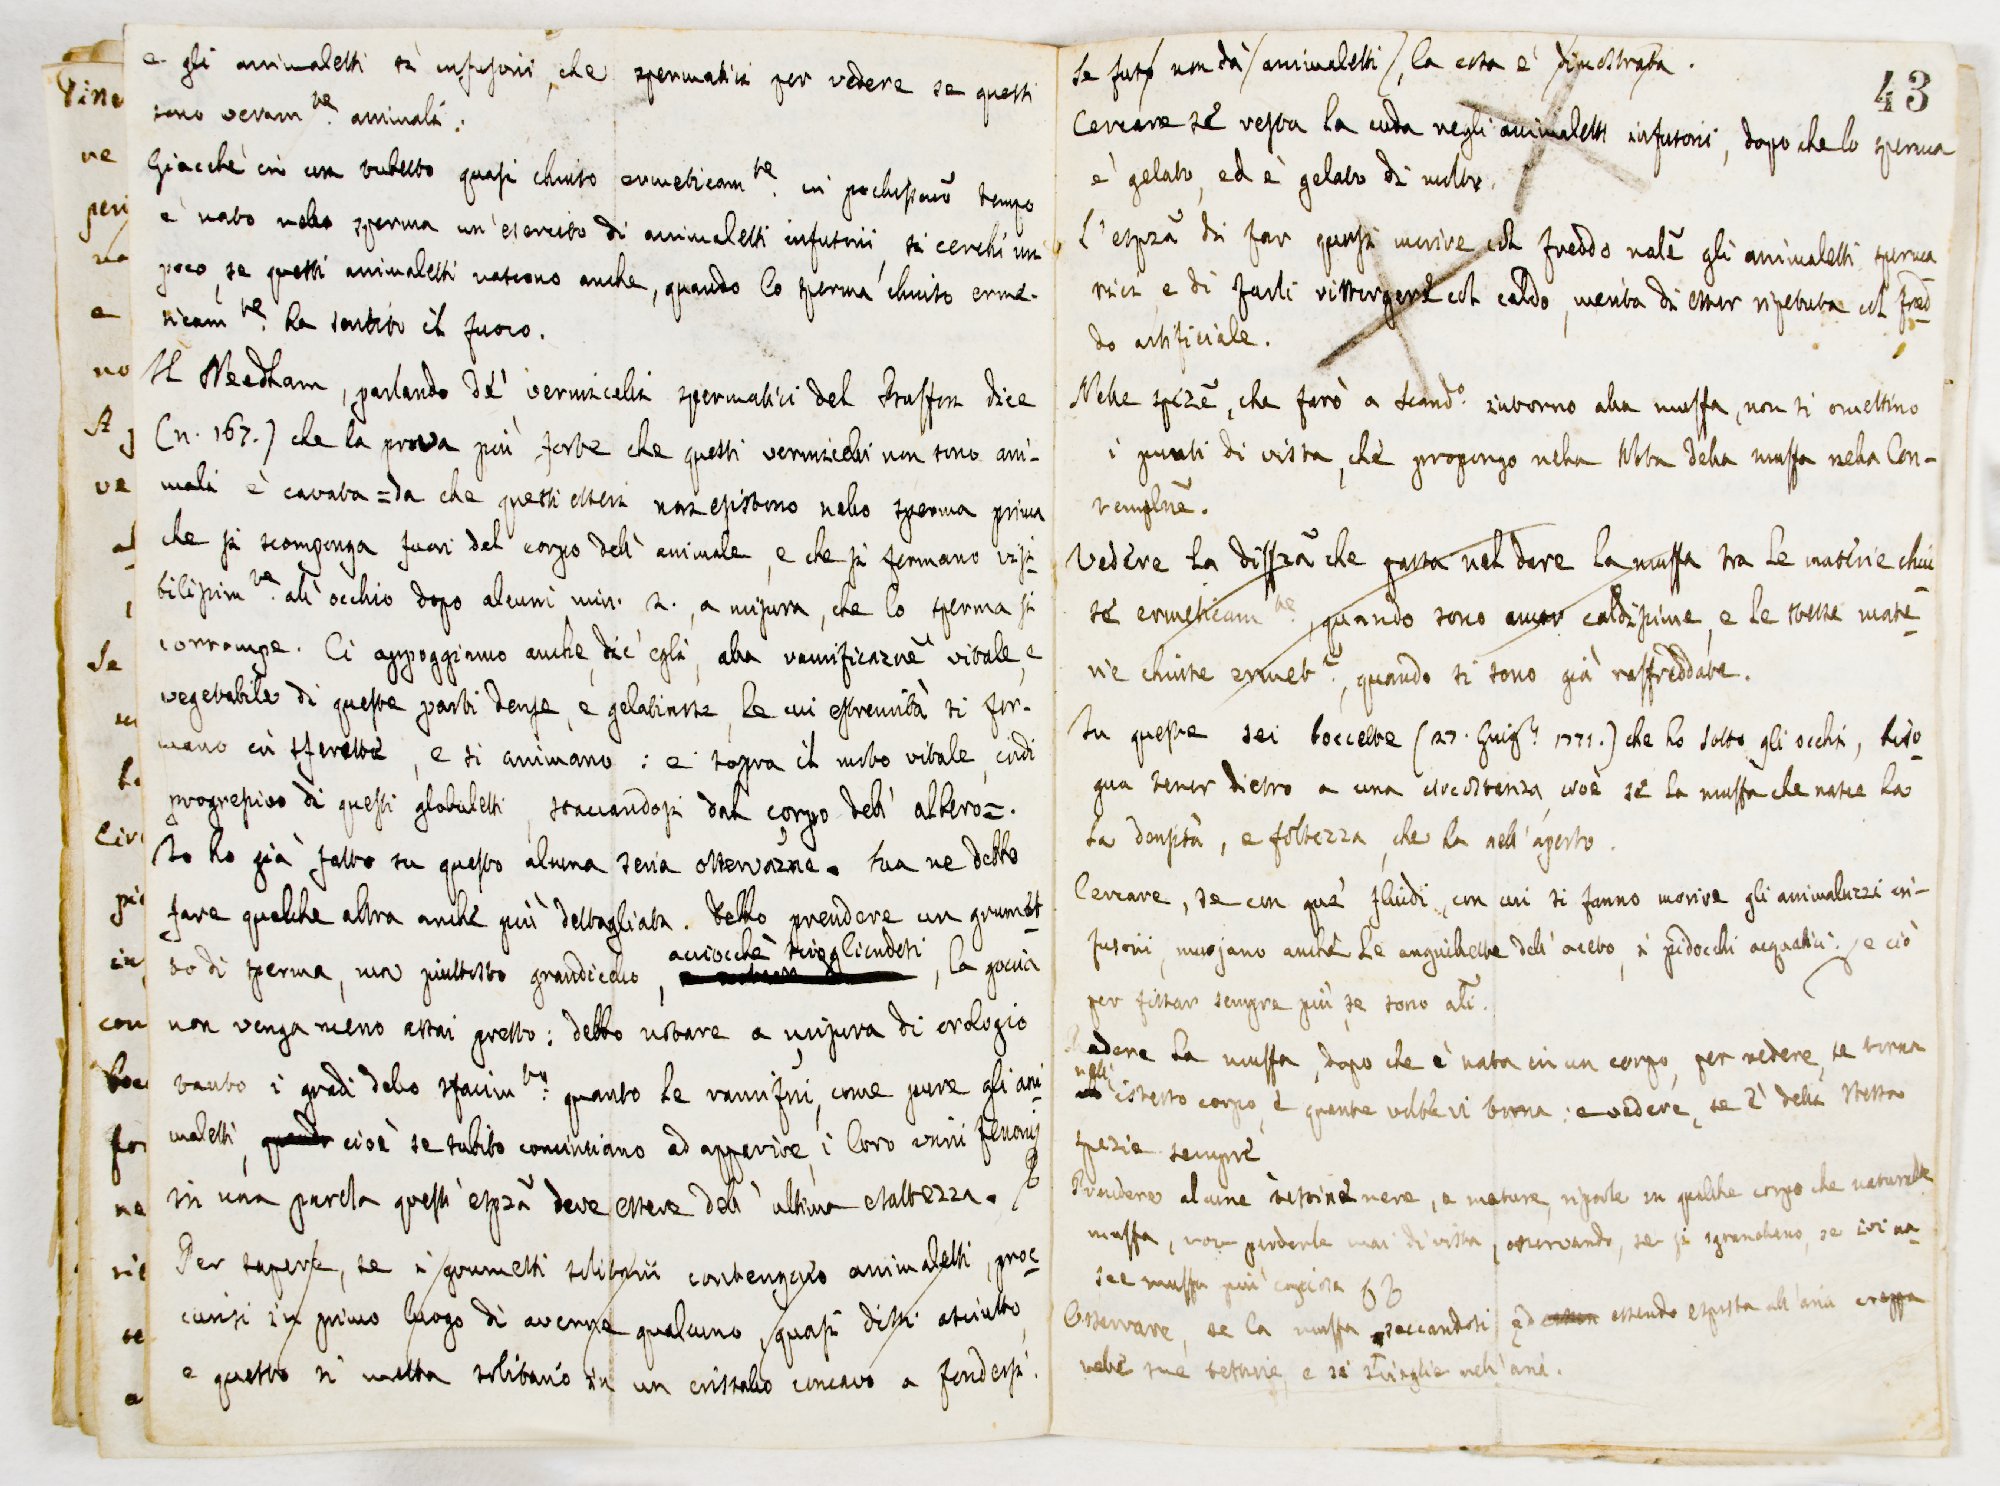 e gli animaletti sì infusorii, che spermatici per vedere se questi
sono veram.te animali.
Giacchè in un tubetto quasi chiuso ermeticam.te in pochissimo tempo
è nato nello sperma un' esercito di animaletti infusorii, si cerchi un
poco, se questi animaletti nascono anche, quando lo sperma chiuso erme-
ticam.te ha sentito il fuoco.
Il Needham, parlando de' vermicelli spermatici del Buffon dice
(n. 167.) che la prova più forte che questi vermicelli non sono ani-
mali è cavata = da che questi esseri non esistono nello sperma prima
che si scomponga fuori del corpo dell' animale, e che si formano visi-
bilissim.te all' occhio dopo alcuni min. 2., a misura, che lo sperma si
corrompe. Ci appoggiamo anche, dic' egli, alla ramificazne vitale, e
vegetabile di queste parti dense, e gelatinose, le cui estremità si for-
mano in sferette, e si animano: e sopra il moto vitale, indi
progressivo di questi globuletti, staccandosi dal corpo dell' albero =.
Io ho già fatto su questo alcuna seria osservazne. Ma ne debbo
fare qualche altra anche più dettagliata. Debbo prendere un grumet-
to di sperma, ma piuttosto grandicello, acciocchè sciogliendosi, la goccia
non venga meno assai presto: debbo notare a misura di orologio
tanto i gradi dello sfacim.to quanto le ramifni, come pure gli ani-
maletti, quando cioè se subito cominciano ad apparire, i loro varii fenomi
in una parola quest' esprza deve essere dell' ultima esattezza.
Per sapere, se i grumetti solitarii contengano animaletti, proc-
curisi in primo luogo di averne qualcuno, quasi dissi asciutto,
e questo si metta solitario in un cristallo concavo a fondersi.
Se fuso non dà animaletti, la cosa è dimostrata.
43
Cercare se resta la coda negli animaletti infusorii, dopo che lo sperma
è gelato, ed è gelato di molto.
L' esprza di far quasi morire col freddo nale gli animaletti sperma
tici, e di farli risorgere col caldo, merita di esser ripetuta col fred-
do artificiale.
Nelle spize, che farò a Scand.o intorno alla muffa, non si omettino
i punti di vista, che propongo nella Nota della muffa nella Con-
templne.
Vedere la diffza che passa nel dare la muffa tra le materie chiu-
se ermeticam.te, quando sono ancor caldissime, e le stesse mate-
rie chiuse ermet.te, quando si sono già raffreddate.
In queste sei boccette (27. Giug.o 1771.) che ho sotto gli occhi, biso-
gna tener dietro a una circostanza, cioè se la muffa che nasce ha
la densità, e foltezza, che ha nell' aperto.
Cercare, se con que' fluidi, con cui si fanno morire gli animaluzzi in-
fusorii, muojano anche le anguillette dell' aceto, i pidocchi acquatici: e ciò
per fissar sempre più, se sono ali.
Radere la muffa, dopo che è nata in un corpo, per vedere, se torna
nell' istesso corpo, e quante volte vi torna: e vedere, se è della stessa
spezie sempre
Prendere alcune testine nere, e mature, riporle su qualche corpo che naturalte
muffa, non perderle mai di vista, osservando, se si sgranellano, se ivi na-
sce muffa più copiosa
Osservare, se la muffa seccandosi, ed essendo esposta all' aria crepa
nelle sue testine, e si scioglie nell' aria.